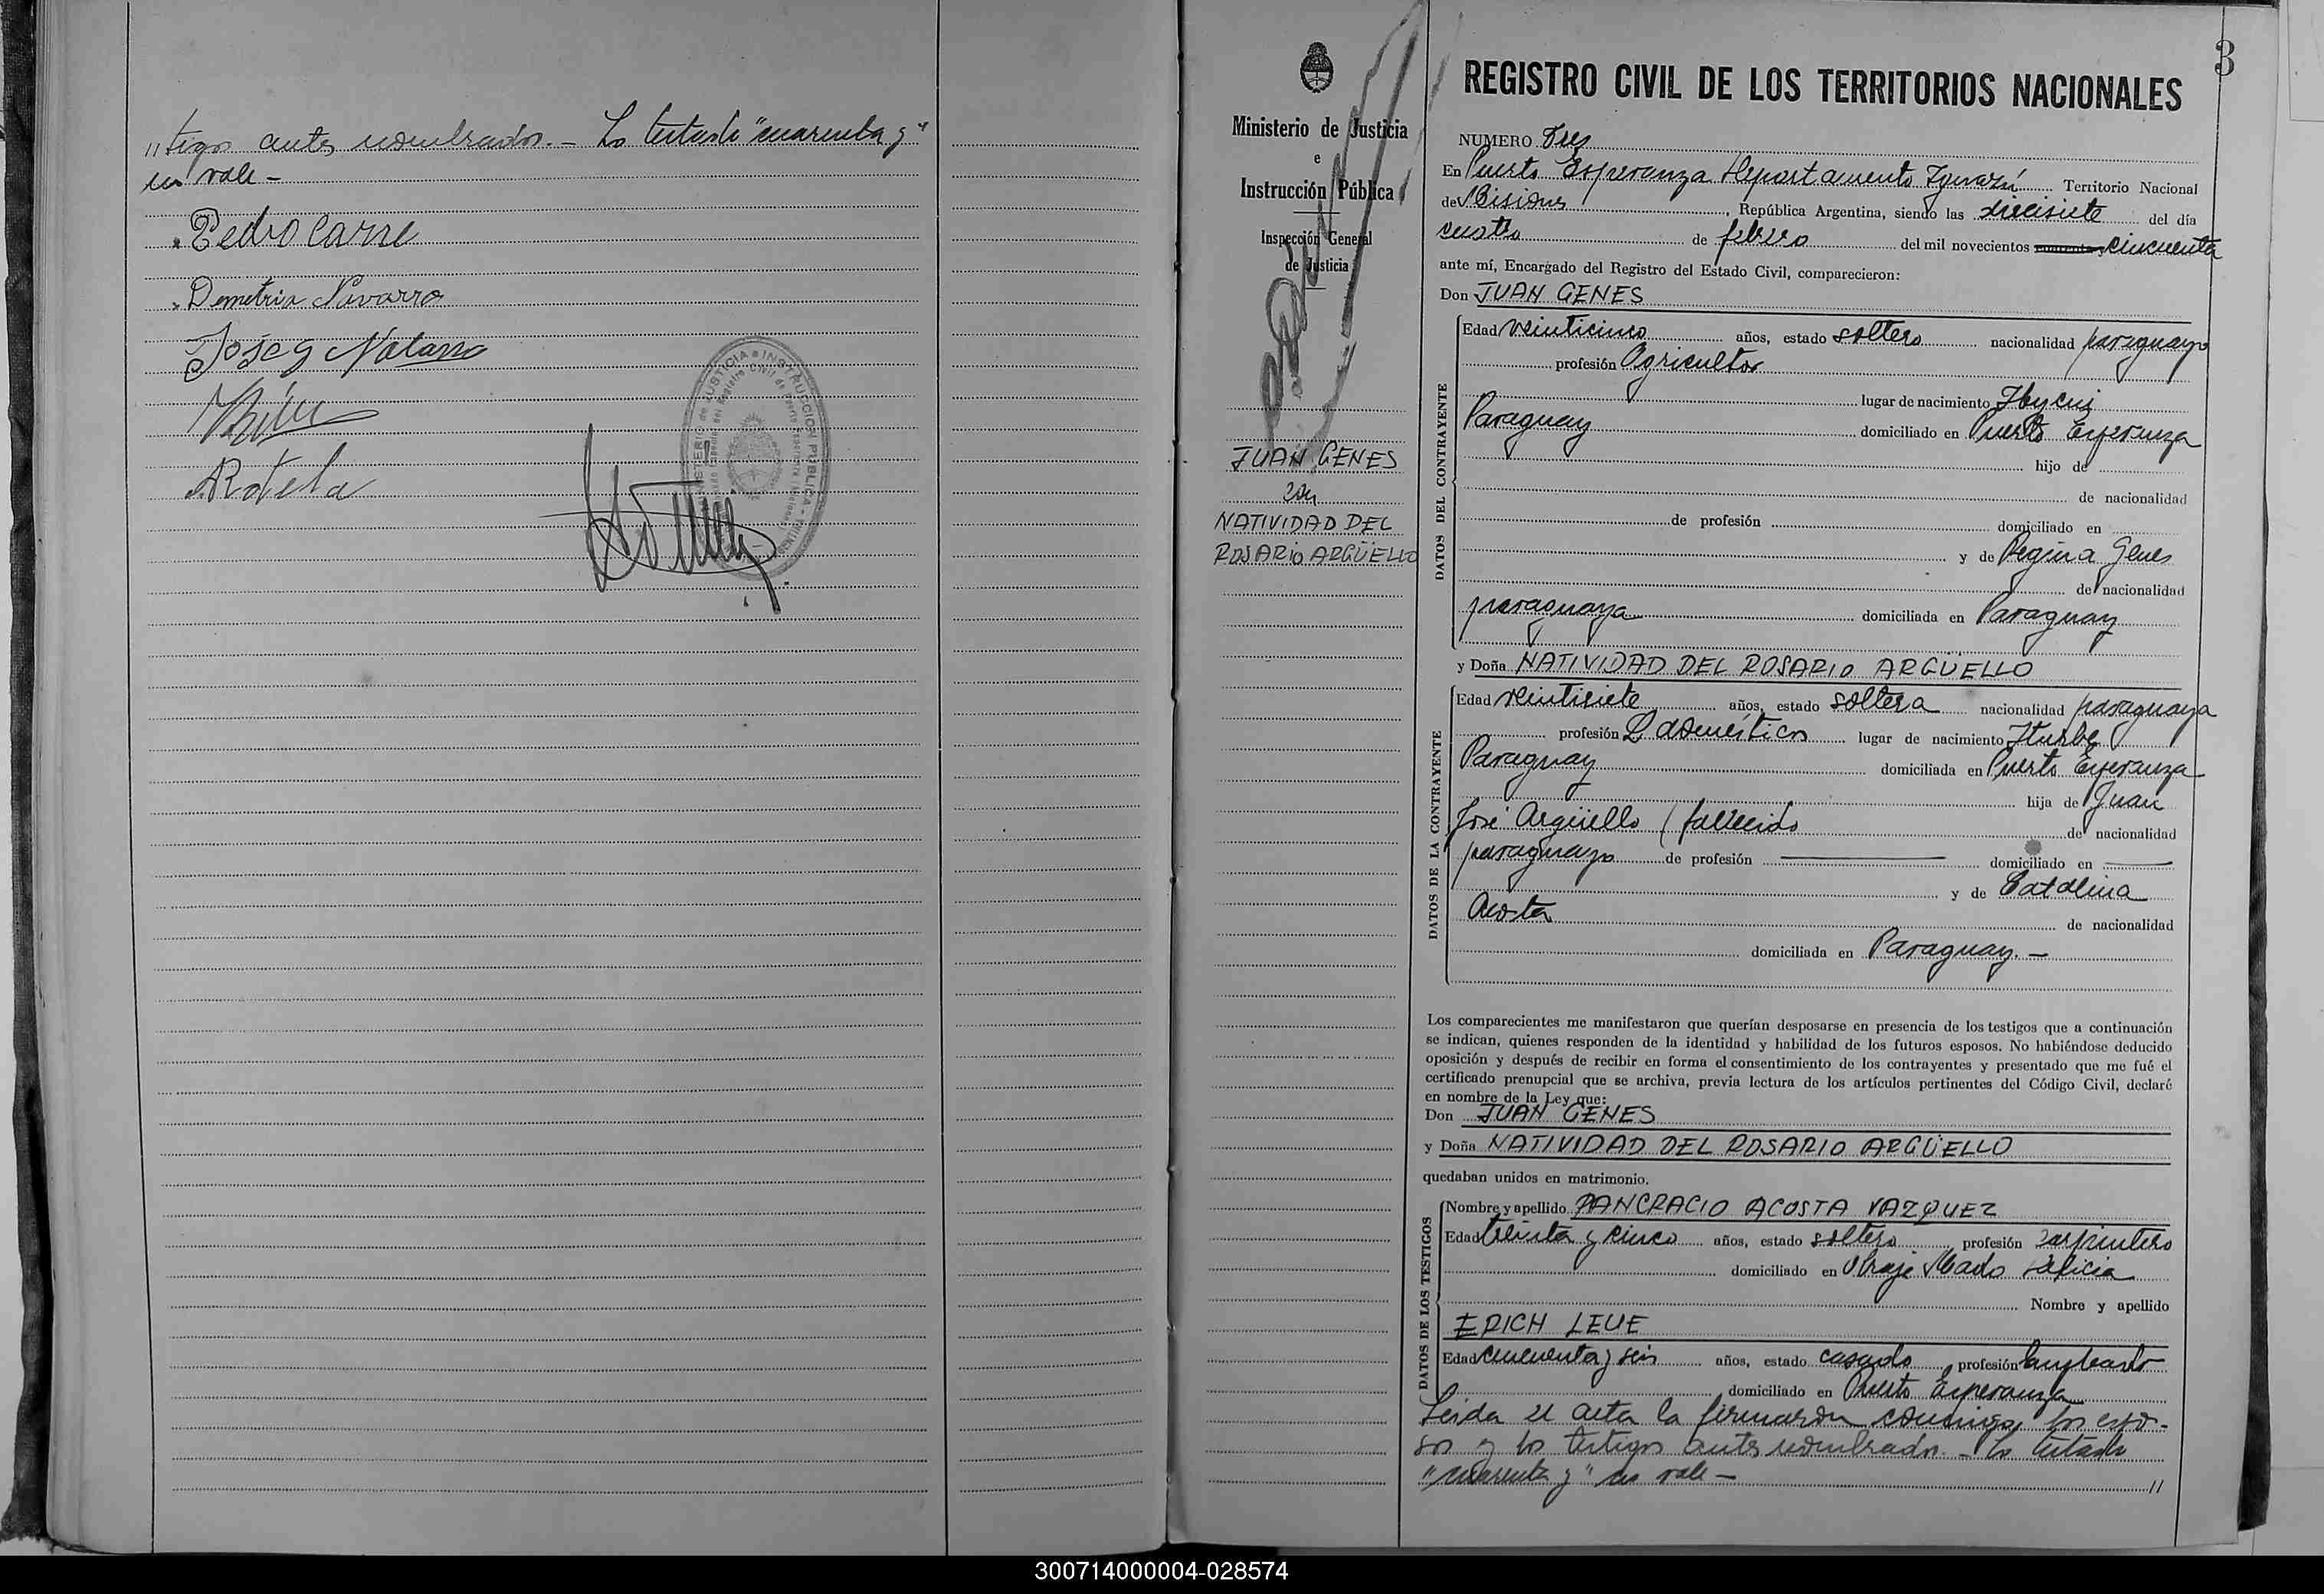 "tigos antes nombrados.- Lo testado "cuarenta y"
no vale-
Pedro Carre
Demetria Navarro
Jose G
Rotela
MINISTERIO de JUSTICIA e INSTRUCCION PUBLICA
3
Ministerio de Justicia
e
Instrucción Pública
Inspección General
de Justicia
JUAN GENES
con
NATIVIDAD DEL
ROSARIO ARGÜELLO
REGISTRO CIVIL DE LOS TERRITORIOS NACIONALES
NUMERO Tres
En Puerto Esperanza Departamento Iguazú Territorio Nacional
de Misiones, República Argentina, siendo las diecisiete del día
cuatro de febrero del mil novecientos cuarenta y cincuenta
ante mí, Encargado del Registro del Estado Civil, comparecieron:
Don JUAN GENES
DATOS DEL CONTRAYENTE
Edad veinticinco años, estado soltero nacionalidad paraguayo
profesión Agricultor
lugar de nacimiento Ibycui
Paraguay domiciliado en Puerto Esperanza
hijo de
de nacionalidad
de profesión domiciliado en
y de Regina Genes
de nacionalidad
paraguaya domiciliada en Paraguay
y Doña NATIVIDAD DEL ROSARIO ARGÜELLO
DATOS DE LA CONTRAYENTE
Edad veintisiete años, estado soltera nacionalidad paraguaya
profesión Q domésticos lugar de nacimiento Iturbe
Paraguay domiciliada en Puerto Esperanza
hija de Juan
José Argüello (fallecido de nacionalidad
paraguayo de profesión — domiciliado en —
y de Catalina
Acosta de nacionalidad
domiciliada en Paraguay.-
Los comparecientes me manifestaron que querían desposarse en presencia de los testigos que a continuación
se indican, quienes responden de la identidad y habilidad de los futuros esposos. No habiéndose deducido
oposición y después de recibir en forma el consentimiento de los contrayentes y presentado que me fué el
certificado prenupcial que se archiva, previa lectura de los artículos pertinentes del Código Civil, declaré
en nombre de la Ley que:
Don JUAN GENES
y Doña NATIVIDAD DEL ROSARIO ARGÜELLO
quedaban unidos en matrimonio.
DATOS DE LOS TESTIGOS
Nombre y apellido PANCRACIO ACOSTA VAZQUEZ
Edad treinta y cinco años, estado soltero profesión carpintero
domiciliado en Obraje Mado Delicia
Nombre y apellido
ERICH LEUE
Edad cincuenta y seis años, estado casado, profesión empleado
domiciliado en Puerto Esperanza
Leida el acta la firmaron conmigo, los espo-
sos y los testigos antes nombrados.- Lo testado
"cuarenta y" no vale- //
300714000004-028574